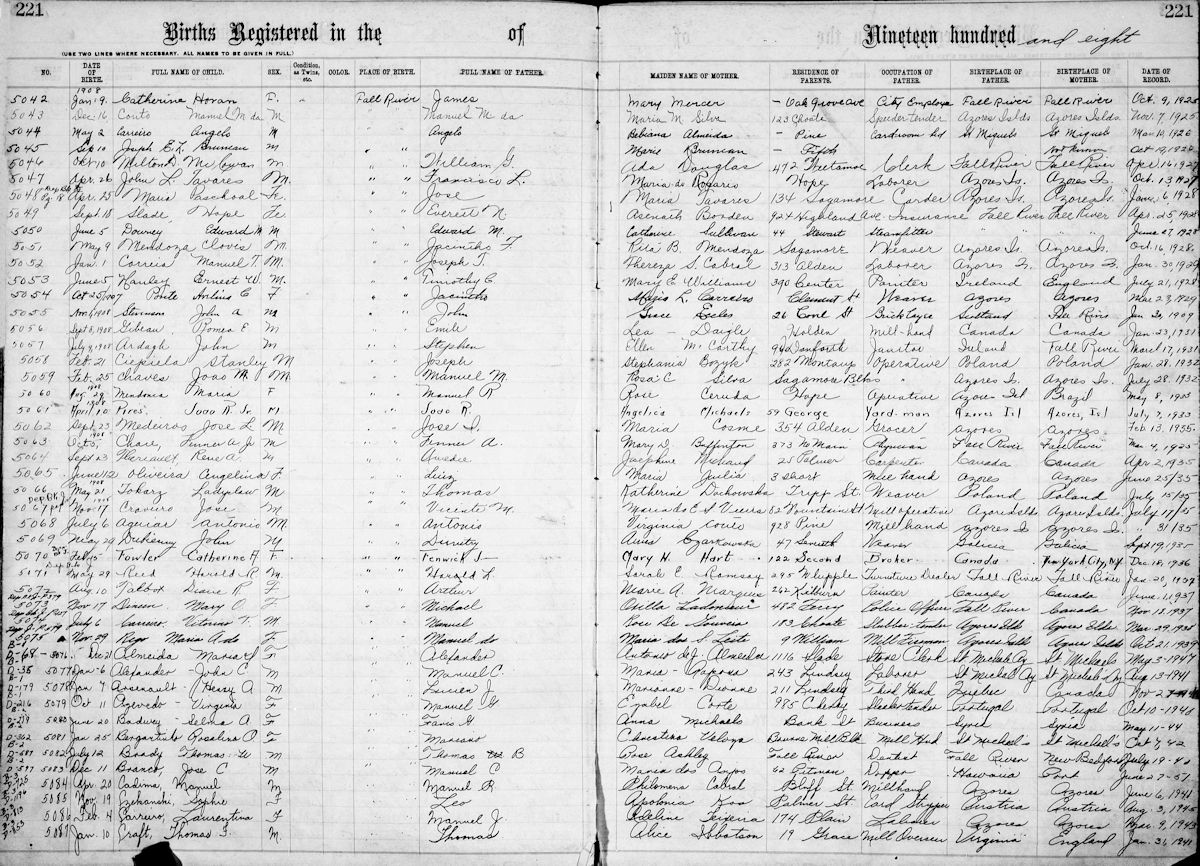 221
221
Births Registered in the of Nineteen hundred and eight
(USE TWO LINES WHERE NECESSARY. ALL NAMES TO BE GIVEN IN FULL.)
NO. DATE OF BIRTH. FULL NAME OF CHILD. SEX. Condition, as Twins, etc. COLOR. PLACE OF BIRTH. FULL NAME OF FATHER. MAIDEN NAME OF MOTHER. RESIDENCE OF PARENTS. OCCUPATION OF FATHER. BIRTHPLACE OF FATHER. BIRTHPLACE OF MOTHER. DATE OF RECORD.
1908
5042 Jan 9. Catherine Horan F. " Fall River James Mary Mercer - Oak Grove Ave City Employe Fall River Fall River Oct. 9, 192
5043 Dec 16 Couto Manuel M da M " " Manuel M da Maria M Silva 123 Choate Spendertender Azores Islds Azores Islds Nov. 7, 1925
5044 May 2 Carreiro Angelo M " " Angelo Bebiana Almeida - Pine Cardroom hd St Miguels St Miguels Mar 10, 1926
5045 Sep 10 Joseph E. L. Brunean M " " Marie Brunean - Fifth Not Known Oct 19, 192
5046 Oct 10 Milton D. McCowan M " " William G. Ada Douglas 492 Weetamoe Clerk Fall River Fall River Apr. 16, 192
5047 Apr. 26 John L. Tavares M. " " Francisco L. Maria do Rosario Hope Laborer Azores Is. Azores Is. Oct. 13, 1927
5048 Apr. 25 Maria Paschoal Fe. " " Jose Maria Tavares 134 Sagamore Carder Azores Is. Azores Is. Jan. 6, 1928
5049 Sept 18 Slade, Hope Fe. " " Everett N. Asenath Borden 924 Highland Ave. Insurance Fall River Fall River Apr. 25, 1928
5050 June 5 Downey Edward M M " " Edward M. Catherine Sullivan 44 Stewart Steamfitter " " " " June 27, 1928
5051 May 9 Mendoza Clovis M. " " Jacintho F. Rita B. Mendoza Sagamore Weaver Azores Is. Azores Is. Oct. 16, 1928
5052 Jan. 1 Correia Manuel T. M. " " Joseph T. Thereza S. Cabral 313 Alden Laborer Azores Is. Azores Is. Jan. 30, 1929
5053 June 5 Hanley Ernest W. M. " " Timothy C. Mary E. Williams 390 Center Painter Ireland England July 21, 192
5054 Oct 25, 1907 Ponte F " " Jacintho L. Carreiro Clement St Weaver Azores Azores Mar 23, 1929
5055 Stevenson John A M " " John Grace Eccles 26 St Bricklayer Scotland
5056 Sept 8, 1908 Gibeau, Romeo E M " " Emile Lea - Daigle Holden Mill-hand Canada Canada Jan. 23, 1931
5057 July 4, 1908 Ardagh John M " " Stephen Ellen McCarthy Danforth Janitor Ireland Fall River March 17, 1931
5058 Feb. 21 Ciepiela Stanley M " " Joseph Stephania Bozyk 282 Montaup Operative Poland Poland Jan. 28, 1932
5059 Feb. 25 Chaves Joao M. M. " " Manuel M. Rosa C Silva Sagamore Blks " Azores Is. Azores Is. July 28, 1932
5060 Mendonia Maria F " " Manuel R Rose Hope Operative Azores Isl Brazil May 8, 1933
5061 April 10 Pires, Joao R. Jr. M " " Joao R. Angelica Michaels 59 George Yard-man Azores, Isl Azores, Isl July 7, 1933
5062 Sept. 23 Medeiros Jose L. M " " Jose Maria Cosme 354 Alden Grocer Azores Azores Feb 13, 1935
5063 Oct. 1908 Chace, Fenner A. Jr M " " Fenner A. Mary D. Buffinton 373 No Main Physician Fall River Fall River Mar 4, 1935
5064 Sept 23 Theriault, Rene A. M " " Amedee Josephine Michaud 25 Palmer Carpenter Canada Canada Apr 2, 1935
5065 June 12 Oliveira Angelina F. " " Luiz Maria Julia 3 Short Mill hand Azores Azores June 25/35
5066 May 21 Tokarz Ladyslaw M " " Thomas Katherine Dachowska Tripp St. Weaver Poland Poland July 15/35
5067 Nov 17 Craveiro Jose M. " " Vicente M. Maria do C S Vieira 82 Fountain St Mill operative Azores Islds Azores Islds July 17/35
5068 July 6 Aguiar Antonio M " " Antonio Virginia Couto 928 Pine Mill hand Azores Is Azores Is " 31/35
5069 May 29 John M " " Dimitry Anna Czarkowska 47 Seventh Weaver Galicia Galicia Sept 19, 1935
5070 Feb 15 Fowler Catherine H F " " Fenwick J - Mary H. Hart 122 Second Broker Canada New York City, N.Y. Dec 18, 1936
5071 May 29 Reed Harold R. M. " " Harold L. Sarah E. Ramsay 295 Whipple Furniture Dealer Fall River Fall River Jan. 20, 1937
5072 Aug 10 Talbot F " " Arthur Marie A. Marquis 262 Kilburn Painter Canada Canada June 1, 1937
5073 Nov 17 Mary O. F " " Michael 482 Police Officer Fall River Canada Nov 15, 1937
5074 July 6 Carreiro, Victorino T. M " " Manuel Rosa De Gouveia 183 Choate Slubber tender Azores Islds Azores Islds Mar 29, 1938
5075 Nov. 29 Rego Maria A do F " " Manuel do Maria dos S. Leite 9 William Mill Foreman Azores Islds Azores Islds Oct 21, 193
B-68 - 5076 Dec 21 Almeida Maria S F " " Alexander Antonio de J. Almeida 1116 Slade Store Clerk St Michaels Az St Michaels May 3, 194
D-35 5077 Jan-6 Alexander - John C M " " Manuel C. Maria - Raposa 243 Lindsey Laborer St Michael Az St Michaels Az Aug 13, 1941
D-179 5078 Jan 7 Arsenault - Henry A M " " Lucien J. Marianne - Dionne 211 Lindsey Third Hand Quebec Canada
D-216 5079 Oct 11 Azevedo - Virginia F " " Manuel G Ezabel Corte 985 Slasher tender Portugal Portugal Oct 10 - 194
5080 June 20 Badwey - Selma A F " " Faris G Anna Michaels Bank St Business Syria Syria May 11-44
D-362 5081 Jan 25 Rosalina P F " " Mariano Bourne Mill Blk Mill Hand St Michael's St Michael's Oct 7, 42
5082 July 12 Brady Thomas W M " " Thomas B Rose Ashley Fall River Dentist Fall River New Bedford July 19-40
D-597 5083 Dec 11 Branco, Jose C M " " Manuel C Maria dos Anjos 62 Putnam Doffer Hawaii Port. June 27-51
5084 Apr. 20 Cadima, Manuel M " " Manuel R Philomena Cabral Bluff St Millhand Azores Azores June 6, 1941
5085 Nov. 19 Sophie F " " Leo Apolonia Koo Palmer St Card Stripper Austria Austria Aug. 3, 194
5086 Feb. 4 Carreiro, Laurentina F " " Manuel J. Adeline Teixeira 174 Plain Laborer Azores Azores Mar. 9, 194
5087 Jan. 10 Craft, Thomas F. M. " " Thomas Alice Ibbotson 19 Grace Mill Overseer Virginia England Jan. 31, 1941